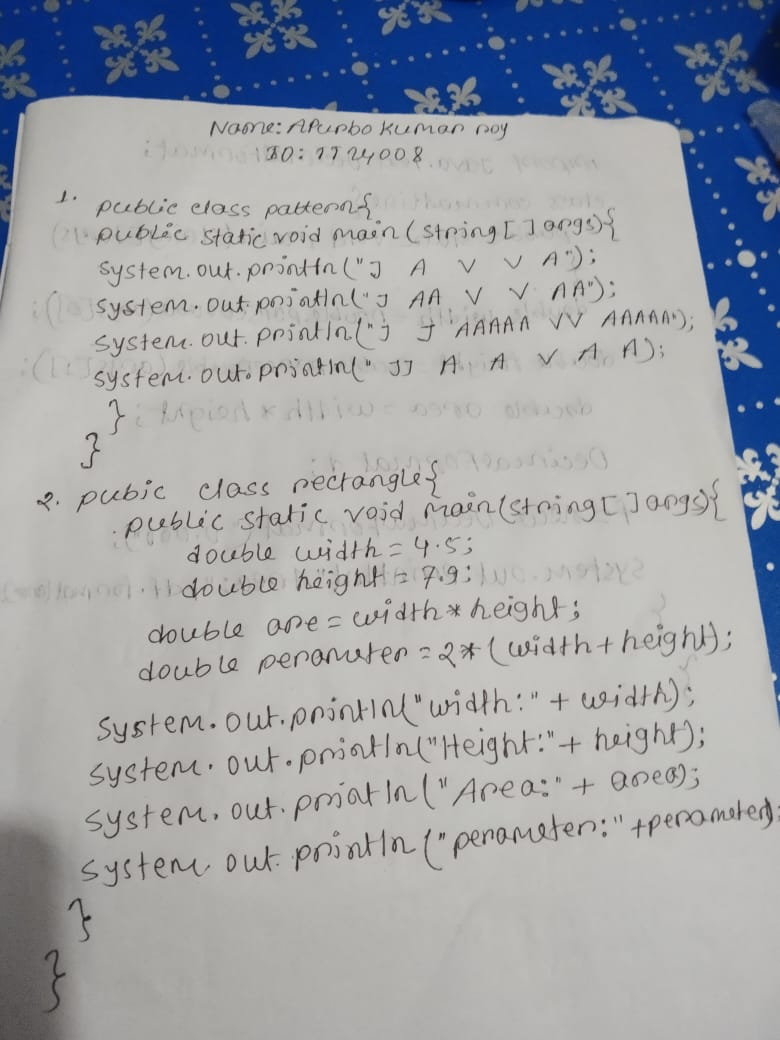 Name: Apurbo Kumar Roy
ID: 1724008
1. public class pattern{
public static void main(string[] args){
system.out.println("J A V V A");
system.out.println("J AA V V AA");
system.out.println("J J AAAAA VV AAAAA");
system.out.println(" JJ A A V A A);
}
}
2. pubic class rectangle{
public static void main(string[] args){
double width = 4.5;
double height = 7.9;
double are = width * height;
double perameter = 2*(width + height);
System.out.println("width:" + width);
system.out.println("Height:" + height);
system.out.println("Area:" + area);
system.out.println("perameter:" +perameter);
}
}